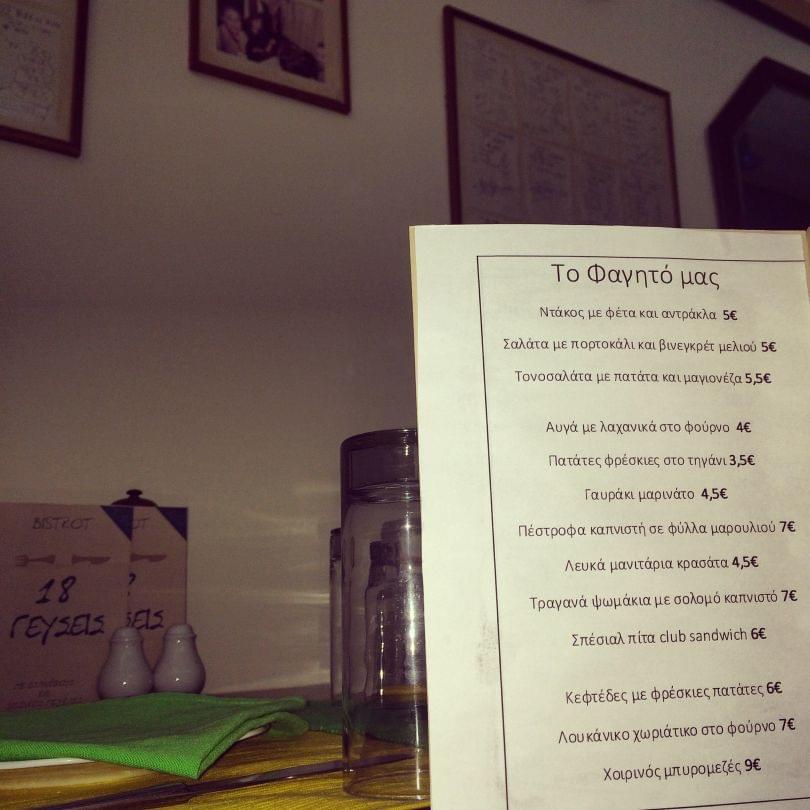 Το Φαγητό μας
Ντάκος με φέτα και αντράκλα 5€
Σαλάτα με πορτοκάλι και βινεγκρέτ μελιού 5€
Τονοσαλάτα με πατάτα και μαγιονέζα 5,5€
Αυγά με λαχανικά στο φούρνο 4€
Πατάτες φρέσκιες στο τηγάνι 3,5€
Γαυράκι μαρινάτο 4,5€
Πέστροφα καπνιστή σε φύλλα μαρουλιού 7€
Λευκά μανιτάρια κρασάτα 4,5€
Τραγανά ψωμάκια με σολομό καπνιστό 7€
Σπέσιαλ πίτα club sandwich 6€
Κεφτέδες με φρέσκιες πατάτες 6€
Λουκάνικο χωριάτικο στο φούρνο 7€
Χοιρινός μπυρομεζές 9€
BISTROT
18
ΓΕΥΣΕΙΣ
ΟΤ
ΣΕΙΣ